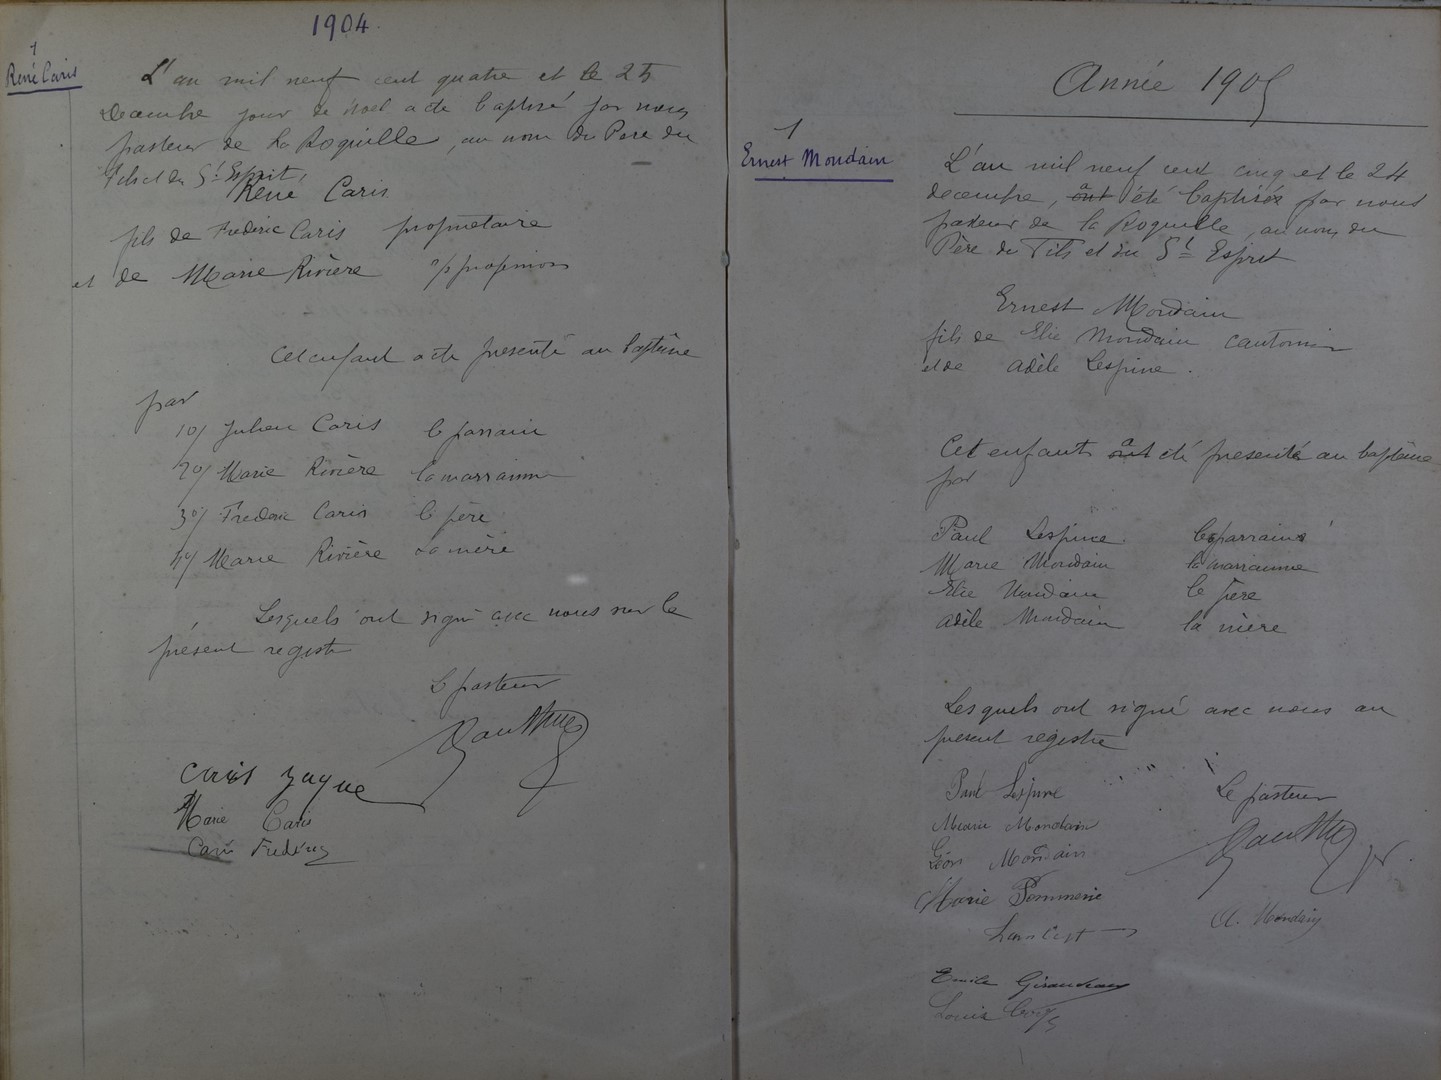 1904
1
René Caris
L'an mil neuf cent quatre et le 25
Decembre jour de Noel a été baptisé par nous
pasteur de La Roquille, au nom du Père du
Fils et du St Esprit,
René Caris
fils de Frédéric Caris propriétaire
et de Marie Rivière
Cet enfant a été présenté au baptême
par
1o/ Julien Caris le parrain
2o/ Marie Rivière la marraine
3o/ Frederic Caris le père
4o/ Marie Rivière la mère
Lesquels ont signé avec nous sur le
présent registre
Le pasteur
Marie Caris
Caris Frédéric
Année 1905
1
Ernest Moudain
L'an mil neuf cent cinq et le 24
decembre, ont a été baptisés par nous
pasteur de la Roquille, au nom du
Père du Fils et du St Esprit
Ernest Moudain
fils de Elie Moudain cantonnier
et de Adèle Lespine.
Cet enfants ont a été presenté au baptême
par
Paul Lespine le parrains
Marie Moudain la marrainne
Elie Moudain le père
Adèle Moudain la mère
Lesquels ont signé avec nous au
présent registre
Paul Lespine
Le pasteur
Moudain
Léon Moudain
Marie Pommerie
A. Moudain
Emile Giraudeau
Louis